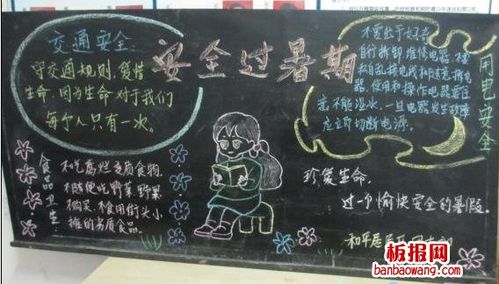 安全过暑期
交通安全:
守交通规则,爱惜
生命,因为生命对于我们
每个人只有一次。
用电安全
不要出于好奇
自行拆卸、维修电器、不
私自
使用和操作电器
先不能湿水,一旦电器发生故障
应立即切断电源。
食品卫生
不吃腐烂变质食物
不随便吃野草野果
不购买、不食用街头小
摊的劣质食品。
珍爱生命,
过一个愉快安全的暑假。
和平居
板报网
banbaowang.com